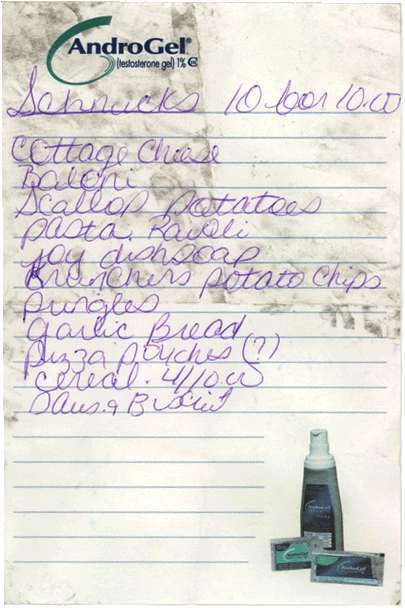 AndroGel®
(testosterone gel) 1% CIII
Schnucks 10 for 10.00
Cottage Chiese
Baloni
Scallop potatoes
pasta Ravoli
joy dishsoap
Krunchers potato chips
pringles
garlic Bread
pizza pouches (?)
cereal . 4/10.00
Saus. & Biscuit
AndroGel
AndroGel
AndroGel